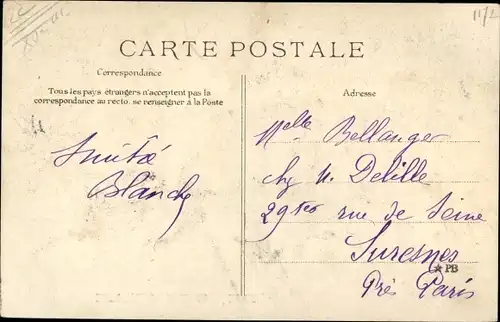 CARTE POSTALE
Correspondance
Tous les pays étrangers n'acceptent pas la
correspondance au recto, se renseigner à la Poste
Adresse
Amitié
Blanche
Melle Bellanger
chz M. Delille
29ter rue de Seine
Suresnes
★PB
Près Paris